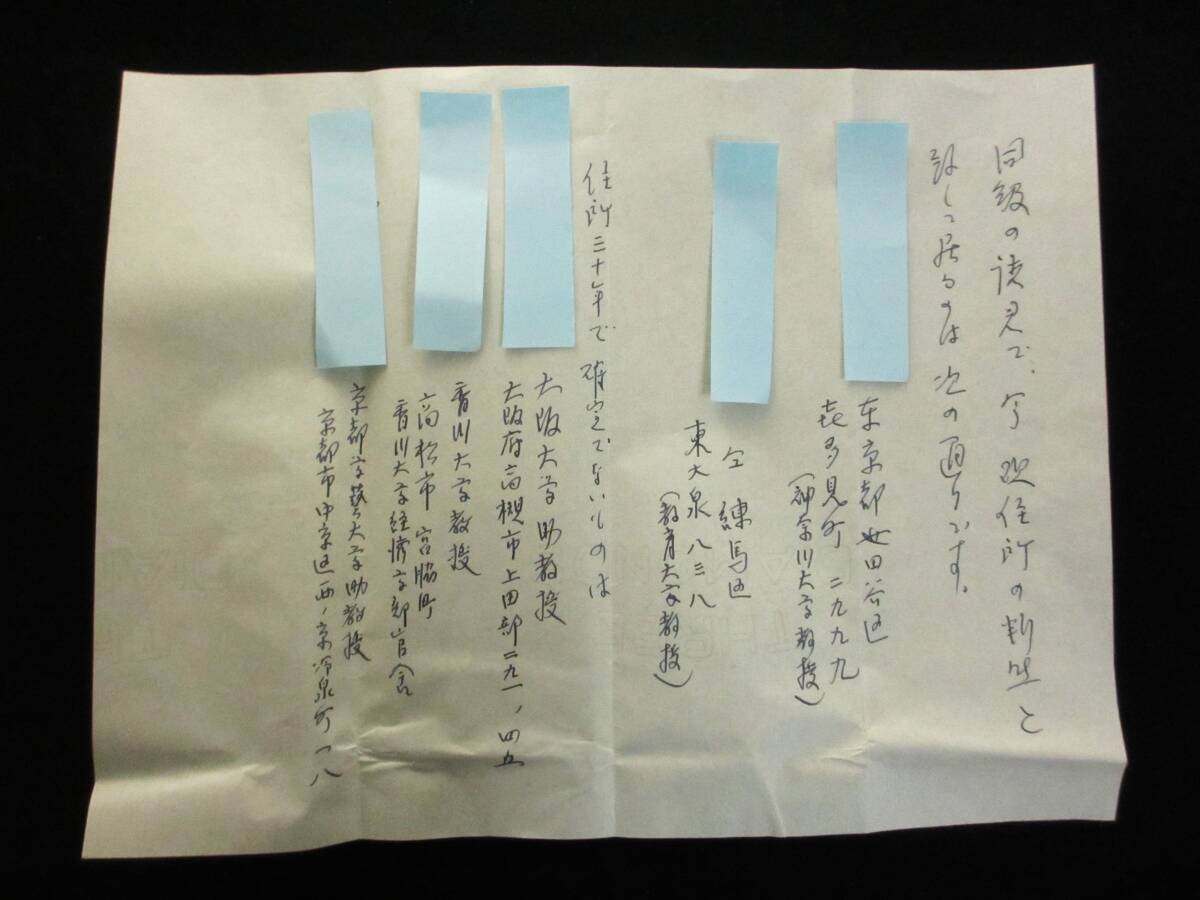 同級の諸兄で、今現住所の判然と
致して居るのは次の通りです。
東京都世田谷区
喜多見町二九九九
(神奈川大学教授)
仝 練馬区
東大泉八三八
(教育大学教授)
住所三十年で確実でないものは
大阪大学助教授
大阪府高槻市上田部二九一ノ四五
香川大学教授
高松市宮脇町
香川大学経済学部官舎
京都学藝大学助教授
京都市中京区西ノ京冷泉町一八